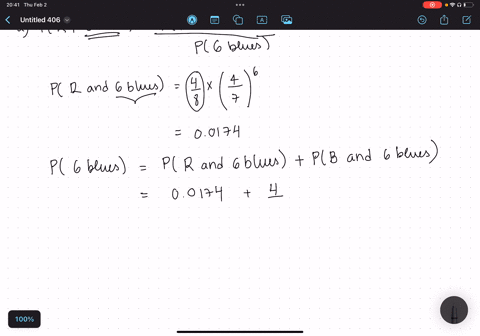 20:41 Thu Feb 2
Untitled 406
P(6 blues)
P( R and 6 blues) = 4/8 × (4/7)^6
= 0.0174
P( 6 blues) = P( R and 6 blues) + P( B and 6 blues)
= 0.0174 + 4
100%